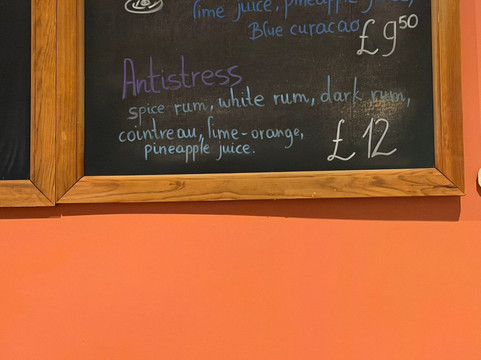 lime juice, pineapple juice,
Blue curacao £9.50
Antistress
spice rum, white rum, dark rum,
cointreau, lime-orange,
pineapple juice. £12